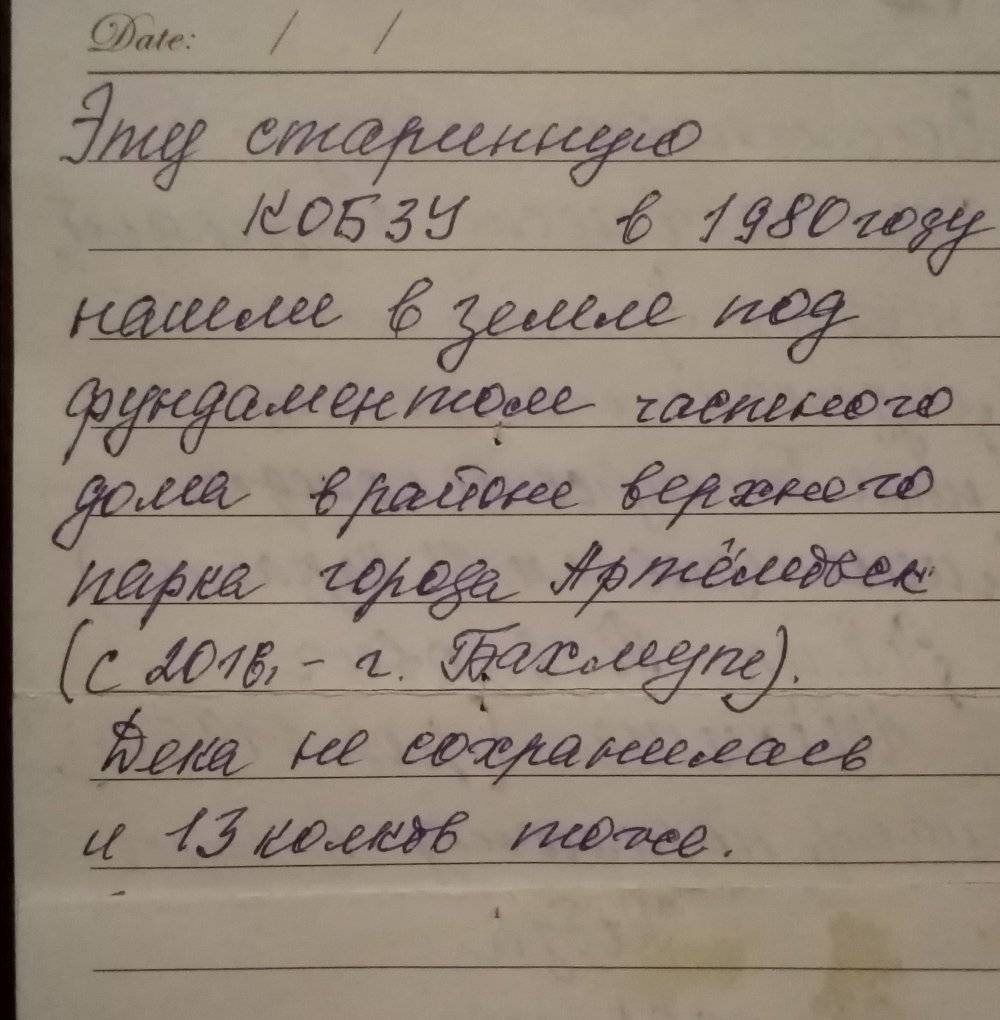 Date: / /
Эту старинную
КОБЗУ в 1980 году
нашли в земле под
фундаментом частного
дома в районе верхнего
парка города Артёмовск
(с 2016, - г. Бахмут).
Дека не сохранилась
и 13 колков тоже.